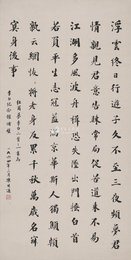 浮雲終日行遊子久不至三夜頻夢君
情親見君意告歸常局促苦道來不易
江湖多風波舟楫恐失墜出門搔白首
若負平生志冠蓋滿京華斯人獨顦顇
孰云網恢恢將老身反累千秋萬歲名寂
寞身後事
杜甫夢李白二首
李白紀念館